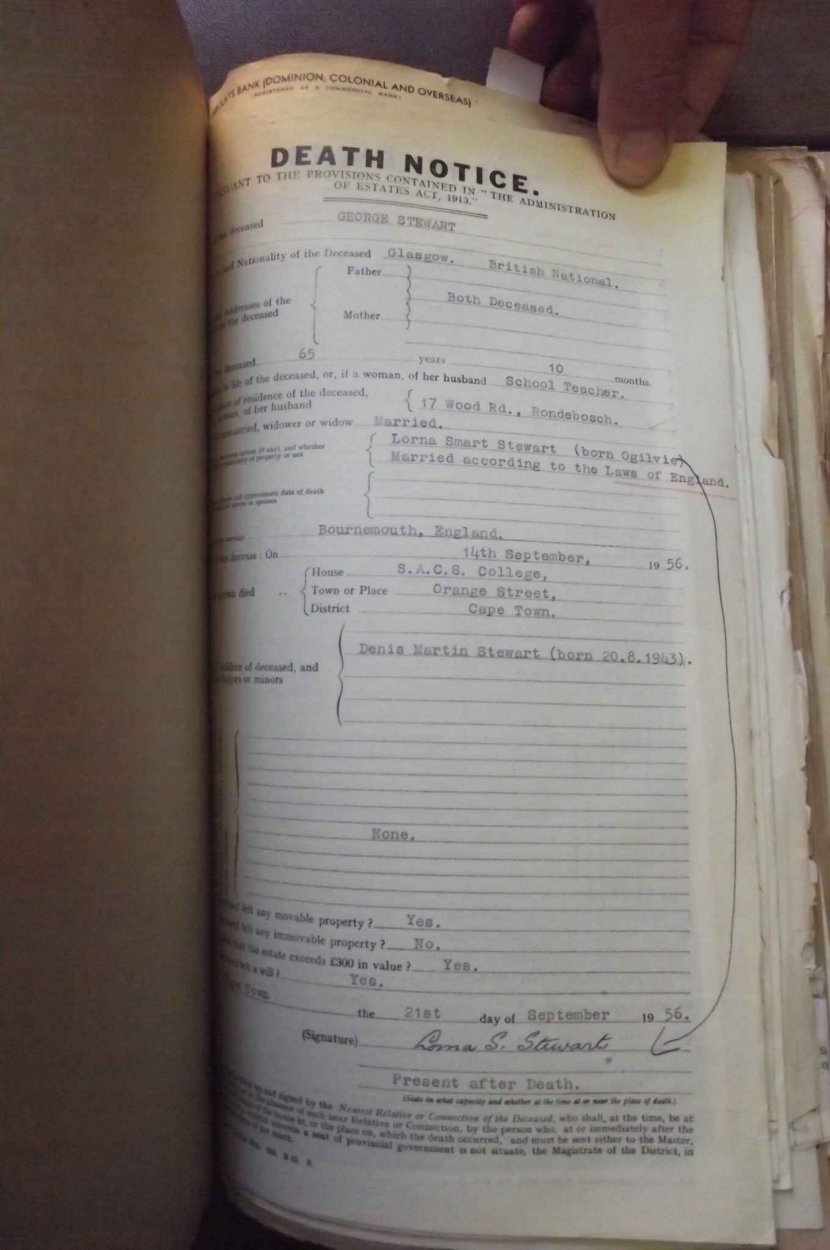 BANK (DOMINION, COLONIAL AND OVERSEAS)
REGISTERED AS A COMMERCIAL BANK
DEATH NOTICE.
TO THE PROVISIONS CONTAINED IN "THE ADMINISTRATION
OF ESTATES ACT, 1913."
deceased GEORGE STEWART
and Nationality of the Deceased Glasgow. British National.
Father
Addresses of the
the deceased
Both Deceased.
Mother
deceased 65 years 10 months.
life of the deceased, or, if a woman, of her husband School Teacher.
of residence of the deceased,
of her husband
17 Wood Rd., Rondebosch.
widower or widow Married.
Lorna Smart Stewart (born Ogilvie)
Married according to the Laws of England.
and whether
of property or not
approximate date of death
Bournemouth, England.
decease: On 14th September, 1956.
House S.A.C.S. College,
died .. Town or Place Orange Street,
District Cape Town.
Denis Martin Stewart (born 20.8.1943).
of deceased, and
or minors
None.
left any movable property? Yes.
left any immovable property? No.
the estate exceeds £300 in value? Yes.
left a will? Yes.
Town
the 21st day of September 1956.
(Signature) Lorna S. Stewart
Present after Death.
(State in what capacity and whether at the time at or near the place of death.)
and signed by the Nearest Relative or Connection of the Deceased, who shall, at the time, be at
the absence of such near Relative or Connection, by the person who, at or immediately after the
of the house in, or the place on, which the death occurred, and must be sent either to the Master,
wherein a seat of provincial government is not situate, the Magistrate of the District, in
of the death.